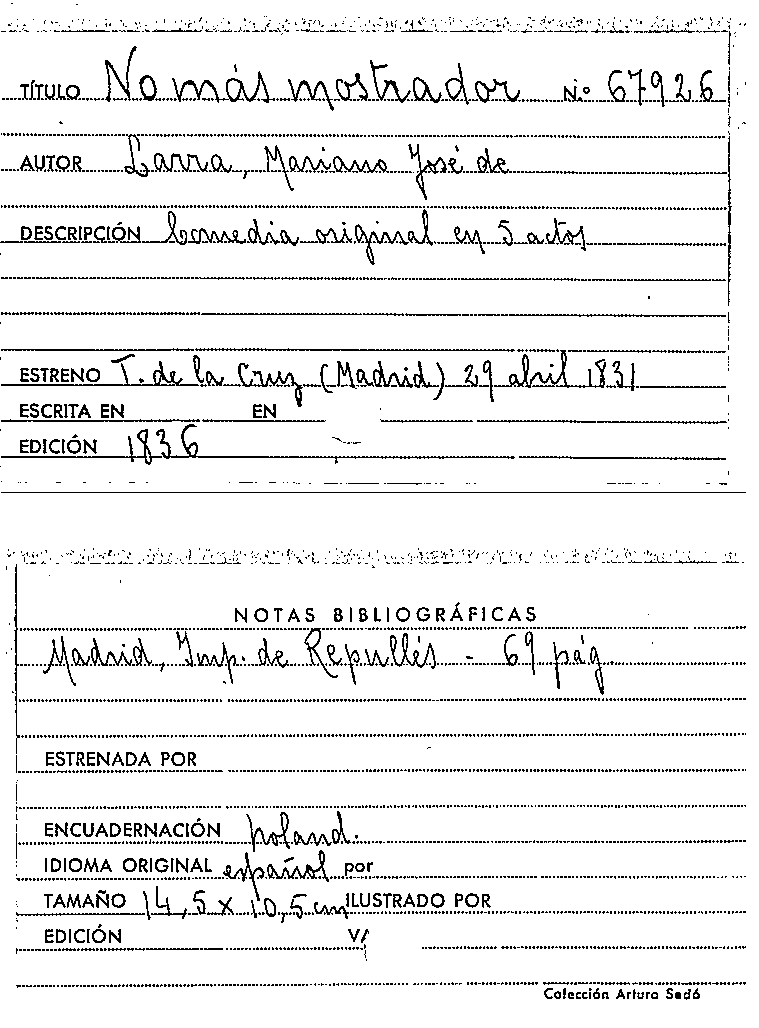 TÍTULO No más mostrador N.º 67926
AUTOR Larra, Mariano José de
DESCRIPCIÓN Comedia original en 5 actos
ESTRENO T. de la Cruz (Madrid) 29 abril 1831
ESCRITA EN EN
EDICIÓN 1836
NOTAS BIBLIOGRÁFICAS
Madrid, Imp. de Repullés - 69 pág.
ESTRENADA POR
ENCUADERNACIÓN holand.
IDIOMA ORIGINAL español por
TAMAÑO 14,5 x 10,5 cm ILUSTRADO POR
EDICIÓN V/
Colección Arturo Sedó